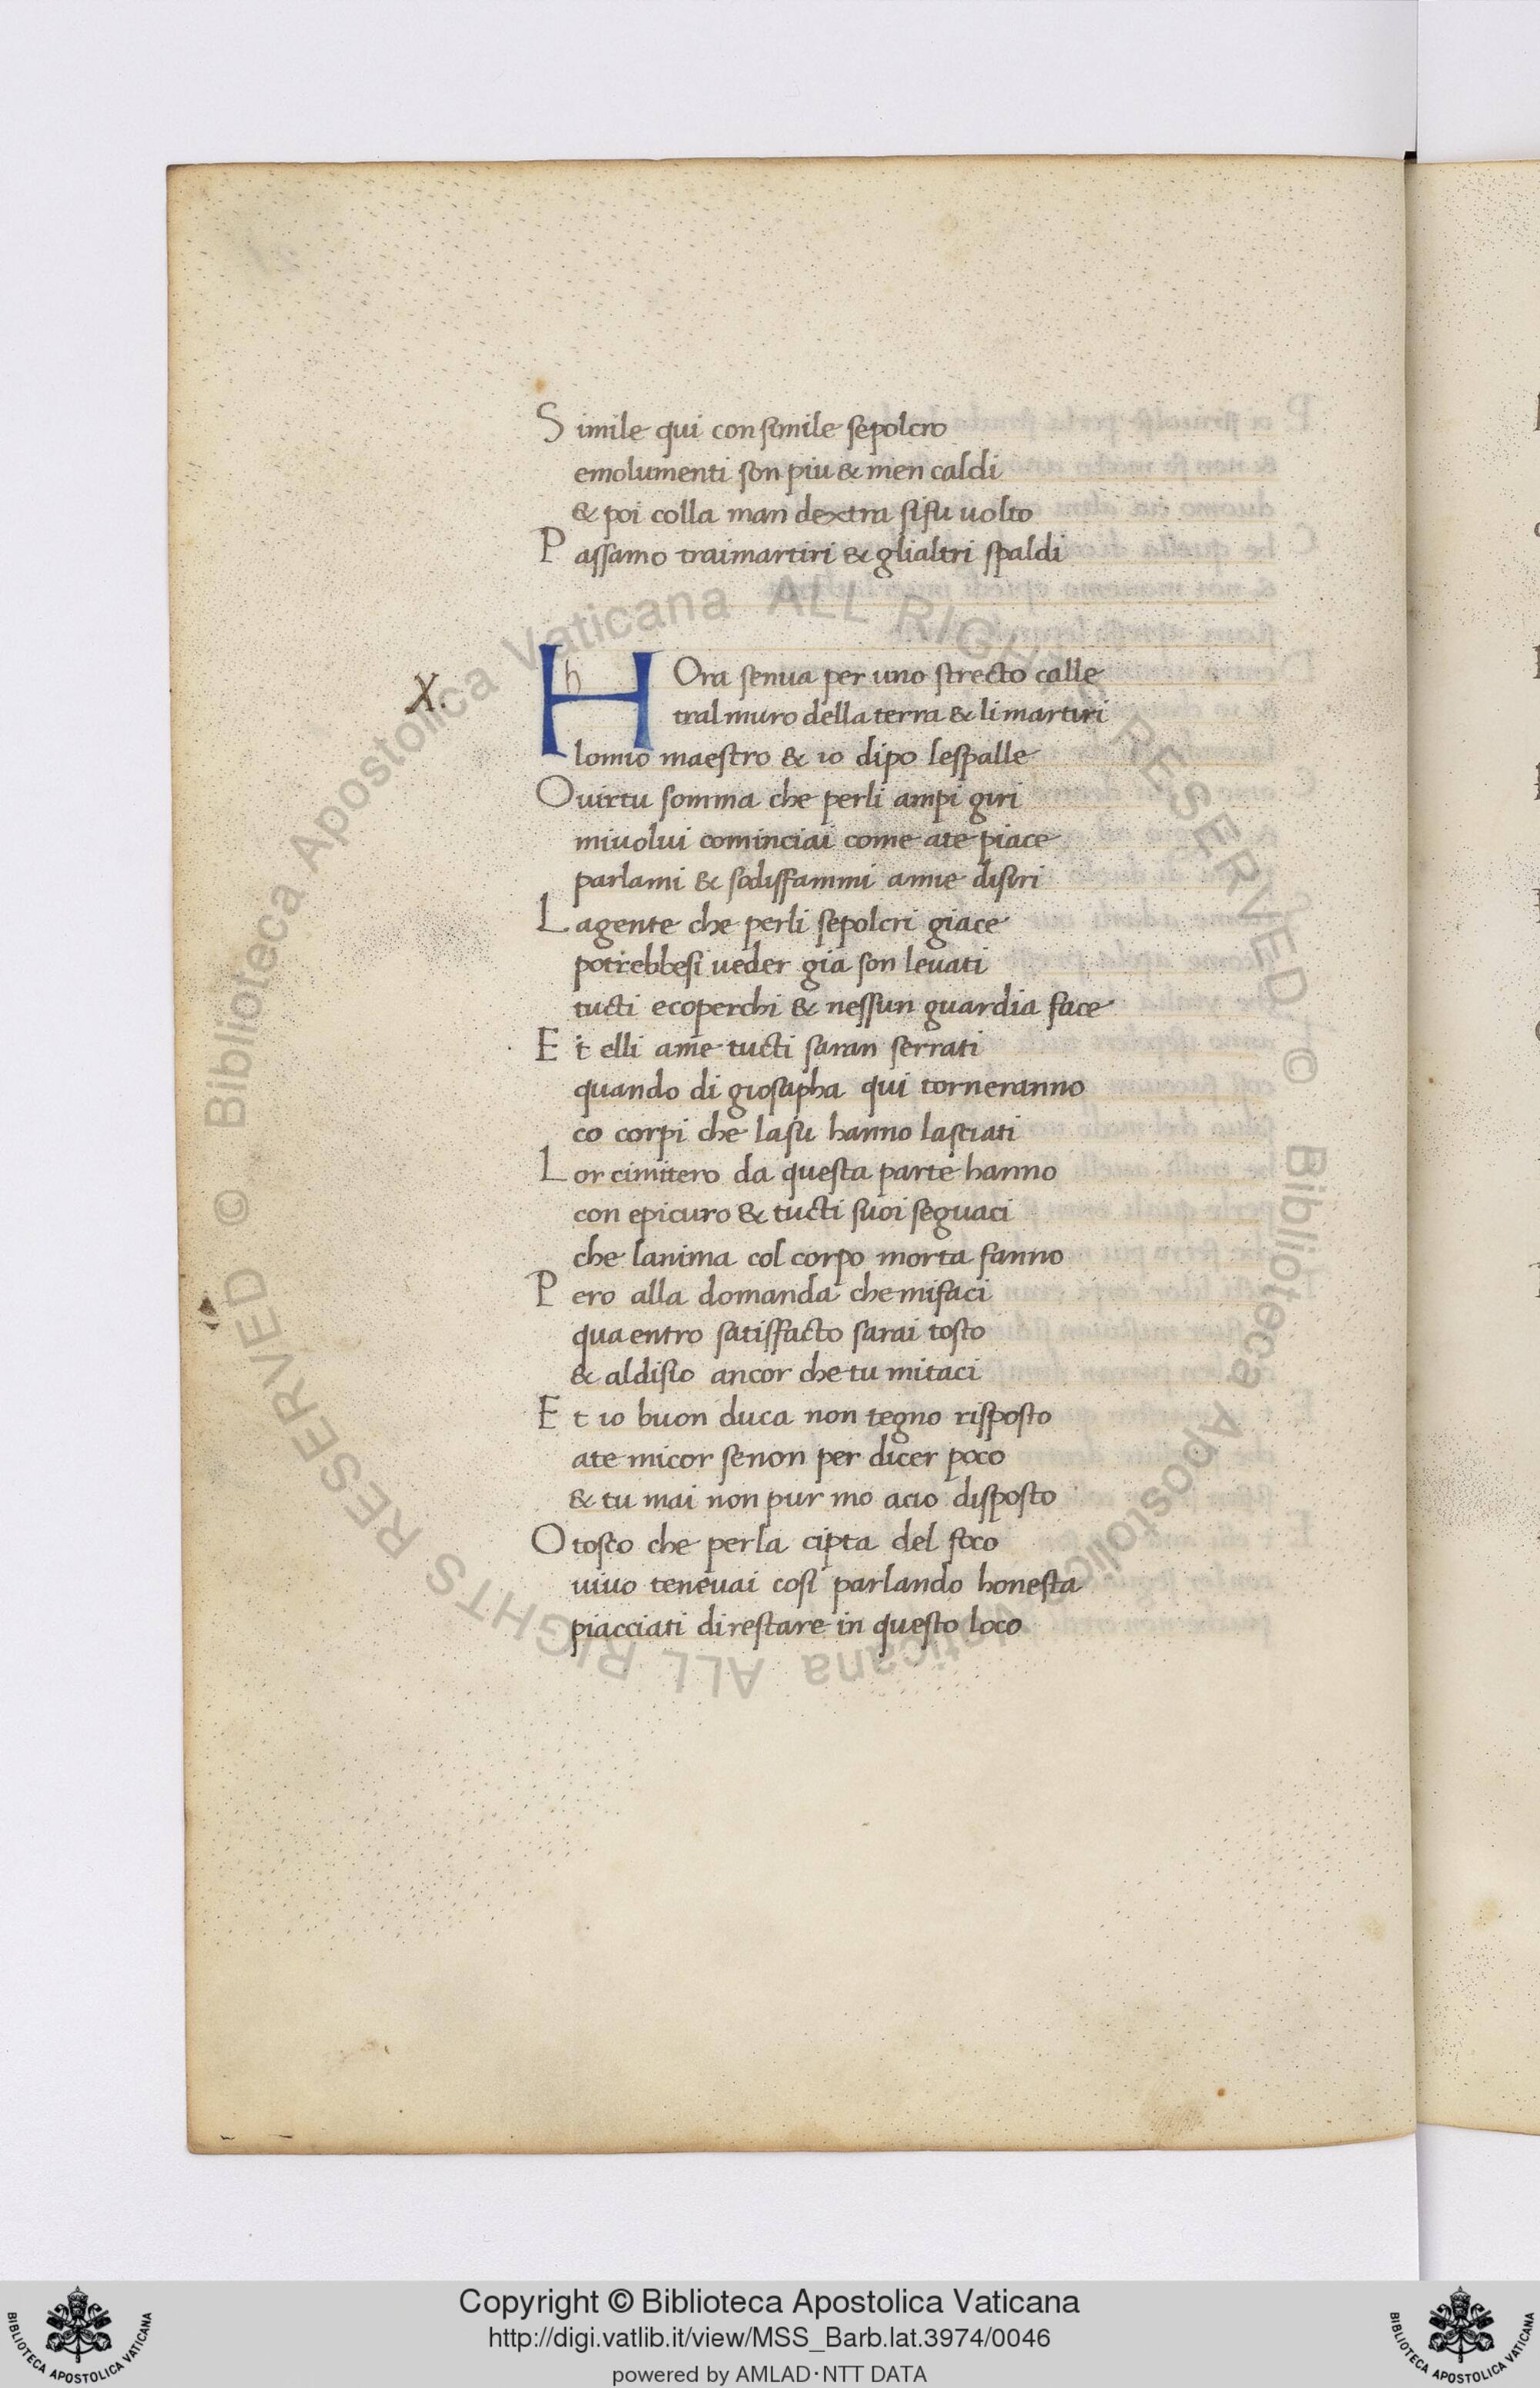 S imile qui con simile sepolcro
emolumenti son piu & men caldi
& poi colla man dextra sifu uolto
P assamo traimartiri & glialtri spaldi
X.
H Ora senua per uno strecto calle
tral muro della terra & li martiri
lomio maestro & io dipo lespalle
O uirtu somma che perli ampi giri
miuolui cominciai come ate piace
parlami & sodisfammi amie disiri
L agente che perli sepolcri giace
potrebbesi ueder gia son leuati
tucti ecoperchi & nessun guardia face
E t elli ame tucti saran serrati
quando di giosapha qui torneranno
co corpi che lasu hanno lasciati
L or cimitero da questa parte hanno
con epicuro & tucti suoi seguaci
che lanima col corpo morta fanno
P ero alla domanda che mifaci
qua entro satisfacto sarai tosto
& aldisio ancor che tu mitaci
E t io buon duca non tegno risposto
ate micor senon per dicer poco
& tu mai non pur mo acio disposto
O tosco che perla cipta del foco
uiuo teneuai cosi parlando honesta
piacciati di restare in questo loco
Biblioteca Apostolica Vaticana ALL RIGHTS RESERVED ©
Biblioteca Apostolica Vaticana ALL RIGHTS RESERVED ©
Copyright © Biblioteca Apostolica Vaticana
http://digi.vatlib.it/view/MSS_Barb.lat.3974/0046
powered by AMLAD·NTT DATA
BIBLIOTECA APOSTOLICA VATICANA
BIBLIOTECA APOSTOLICA VATICANA